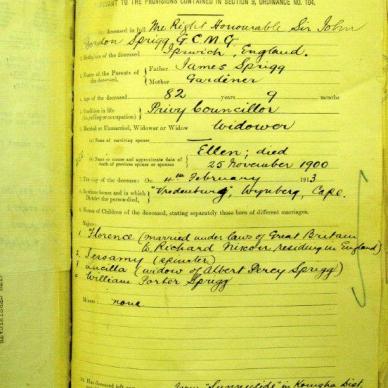 PURSUANT TO THE PROVISIONS CONTAINED IN SECTION 9, ORDINANCE NO. 104.
The Right Honourable Sir John
Gordon Sprigg G.C.M.G.
Ipswich, England.
Names of the Parents of the deceased. Father James Sprigg
Mother Gardiner
Age of the deceased 82 years 9 months
Condition in life Privy Councillor
Married or Unmarried, Widower or Widow Widower
(a) Name of surviving spouse
(b) Name or names and approximate date of death of previous spouse or spouses Ellen; died
25 November 1900
The day of the decease On 4th February 1913
"Vredenburg", Wynberg, Cape.
Names of Children of the deceased, stating separately those born of different marriages.
Majors
1. Florence (married under laws of Great Britain
to Richard residing in England)
2. (spinster)
3. (widow of Albert Percy Sprigg)
4. William Porter Sprigg
Minors none
in Komgha Dist